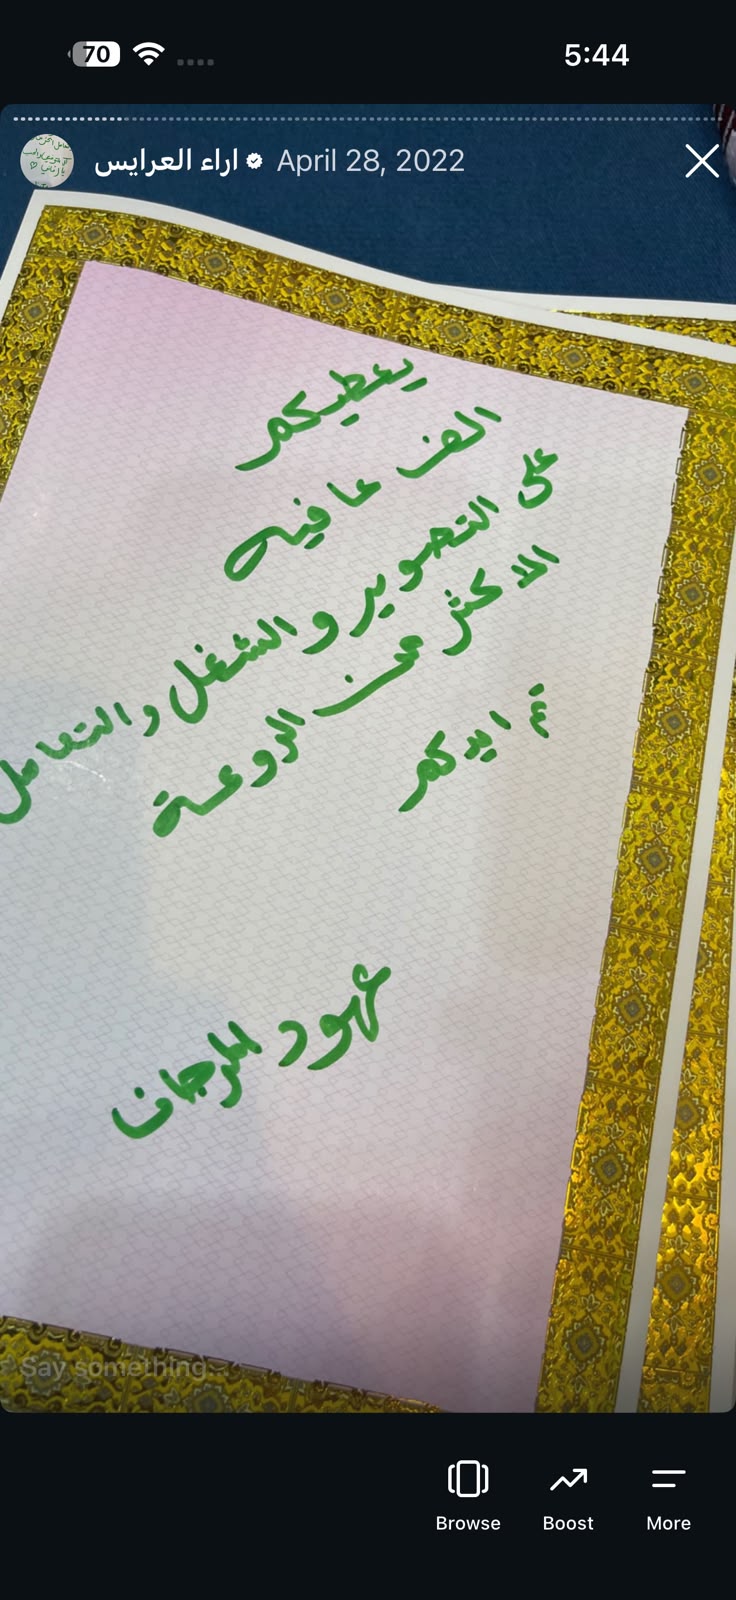 70
5:44
اراء العرايس
April 28, 2022
يعطيكم
الف عافيه
على التصوير والشغل والتعامل
الاكثر من الروعة
تم ايدكم
عهود المرجان
Say something...
Browse
Boost
More